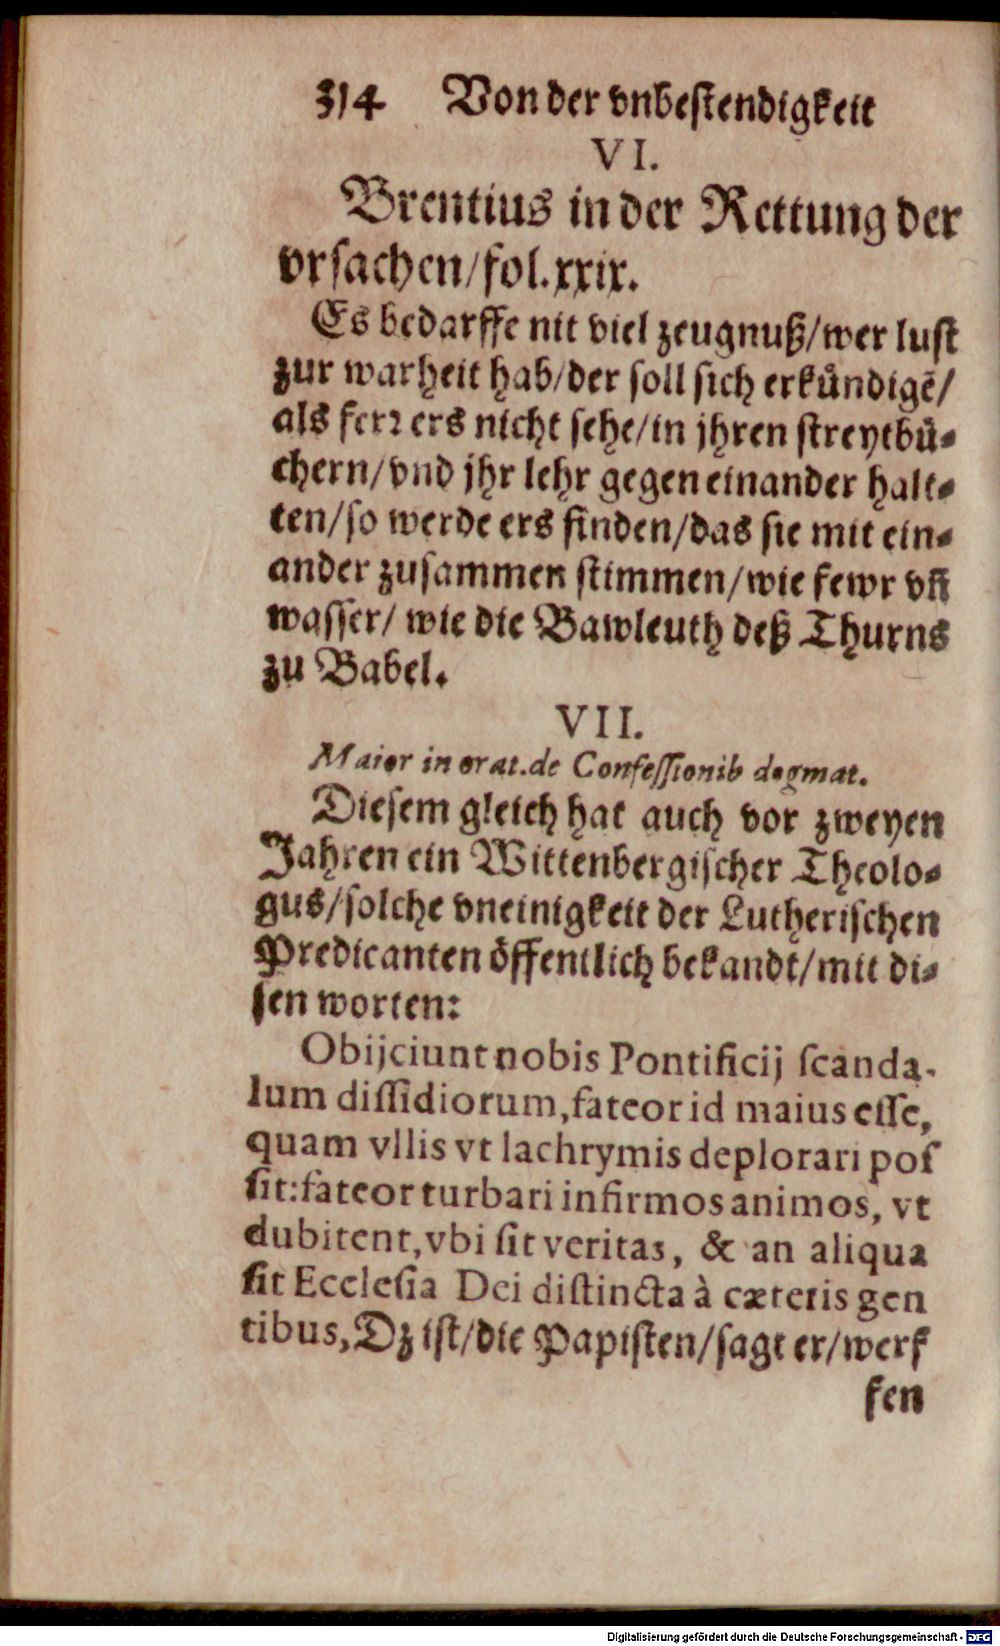 314 Von der vnbestendigkeit
VI.
Brentius in der Rettung der
vrsachen/fol.xxix.
Es bedarffe nit viel zeugnuß/wer lust
zur warheit hab/der soll sich erkůndigē/
als ferꝛ ers nicht sehe/in jhren streytbů-
chern/vnd jhr lehr gegen einander halt-
ten/so werde ers finden/das sie mit ein-
ander zusammen stimmen/wie fewr vn̄
wasser/ wie die Bawleuth deß Thurns
zu Babel.
VII.
Maior in orat.de Confeſſionib dogmat.
Diesem gleich hat auch vor zweyen
Jahren ein Wittenbergischer Theolo-
gus/solche vneinigkeit der Lutherischen
Predicanten öffentlich bekandt/mit di-
sen worten:
Obijciunt nobis Pontificij ſcanda-
lum diſſidiorum,fateor id maius eſſe,
quam vllis vt lachrymis deplorari poſ
ſit:fateor turbari infirmos animos, vt
dubitent,vbi ſit veritas, & an aliqua
ſit Eccleſia Dei diſtincta à cæteris gen
tibus,Dz ist/die Papisten/sagt er/werf
fen
Digitalisierung gefördert durch die Deutsche Forschungsgemeinschaft - DFG